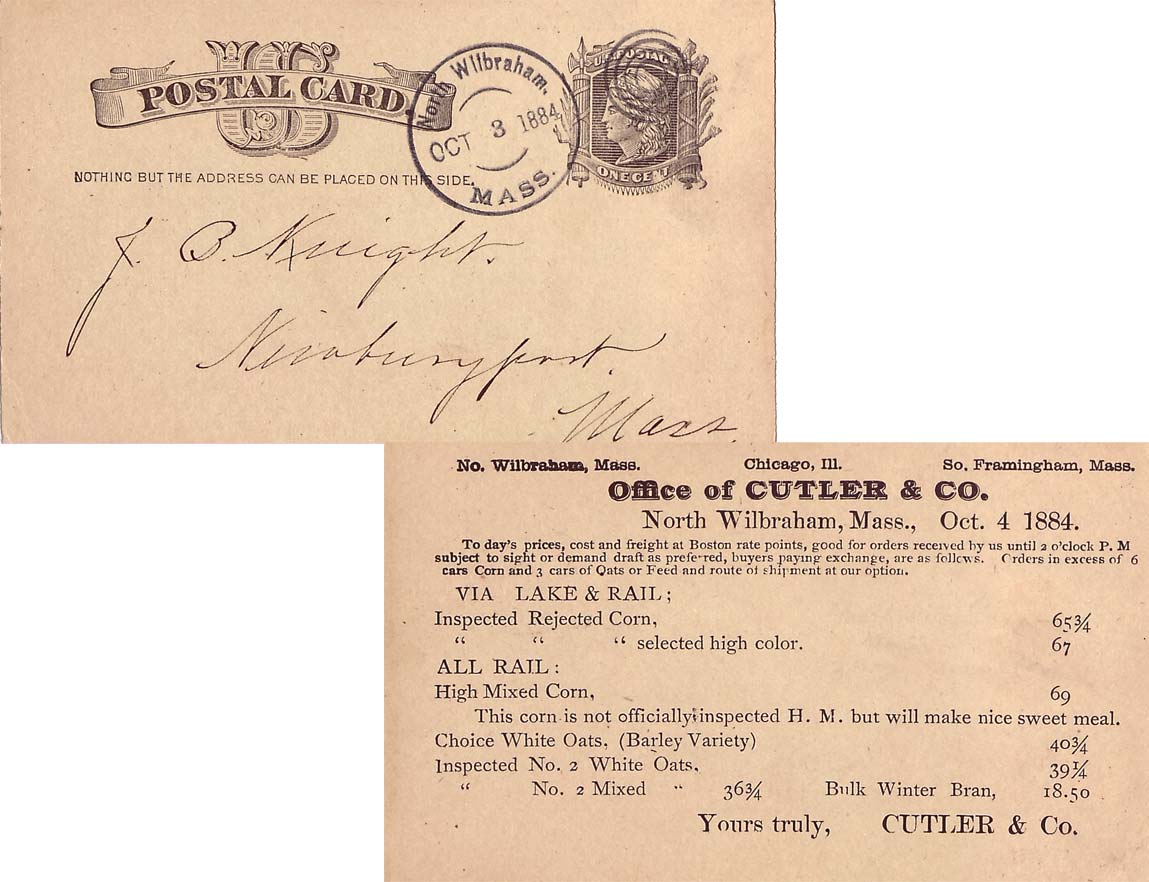 US
POSTAL CARD.
NOTHING BUT THE ADDRESS CAN BE PLACED ON THIS SIDE.
North Wilbraham.
OCT 3 1884
MASS.
U.S. POSTAL
ONE CENT
J. B. Knight.
Newburyport.
Mass.
No. Wilbraham, Mass. Chicago, Ill. So. Framingham, Mass.
Office of CUTLER & CO.
North Wilbraham, Mass., Oct. 4 1884.
To day's prices, cost and freight at Boston rate points, good for orders received by us until 2 o'clock P. M
subject to sight or demand draft as preferred, buyers paying exchange, are as follows. Orders in excess of 6
cars Corn and 3 cars of Oats or Feed and route of shipment at our option.
VIA LAKE & RAIL;
Inspected Rejected Corn, 65¾
“ “ “ selected high color. 67
ALL RAIL:
High Mixed Corn, 69
This corn is not officially inspected H. M. but will make nice sweet meal.
Choice White Oats, (Barley Variety) 40¾
Inspected No. 2 White Oats, 39¼
“ No. 2 Mixed “ 36¾ Bulk Winter Bran, 18.50
Yours truly, CUTLER & Co.